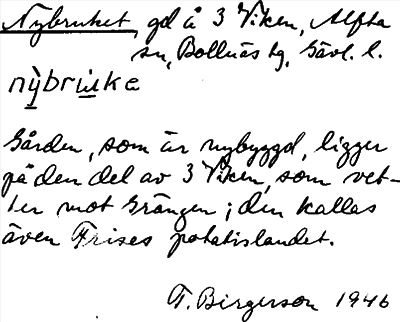 Nybruket, gd å 3 Viken, Alfta
sn, Bollnäs tg, Gävl. l.
nỳbrùka
Gården, som är nybyggd, ligger
på den del av 3 Viken, som vet-
ter mot Grängen; den kallas
även Frises potatislandet.
T. Birgerson 1946